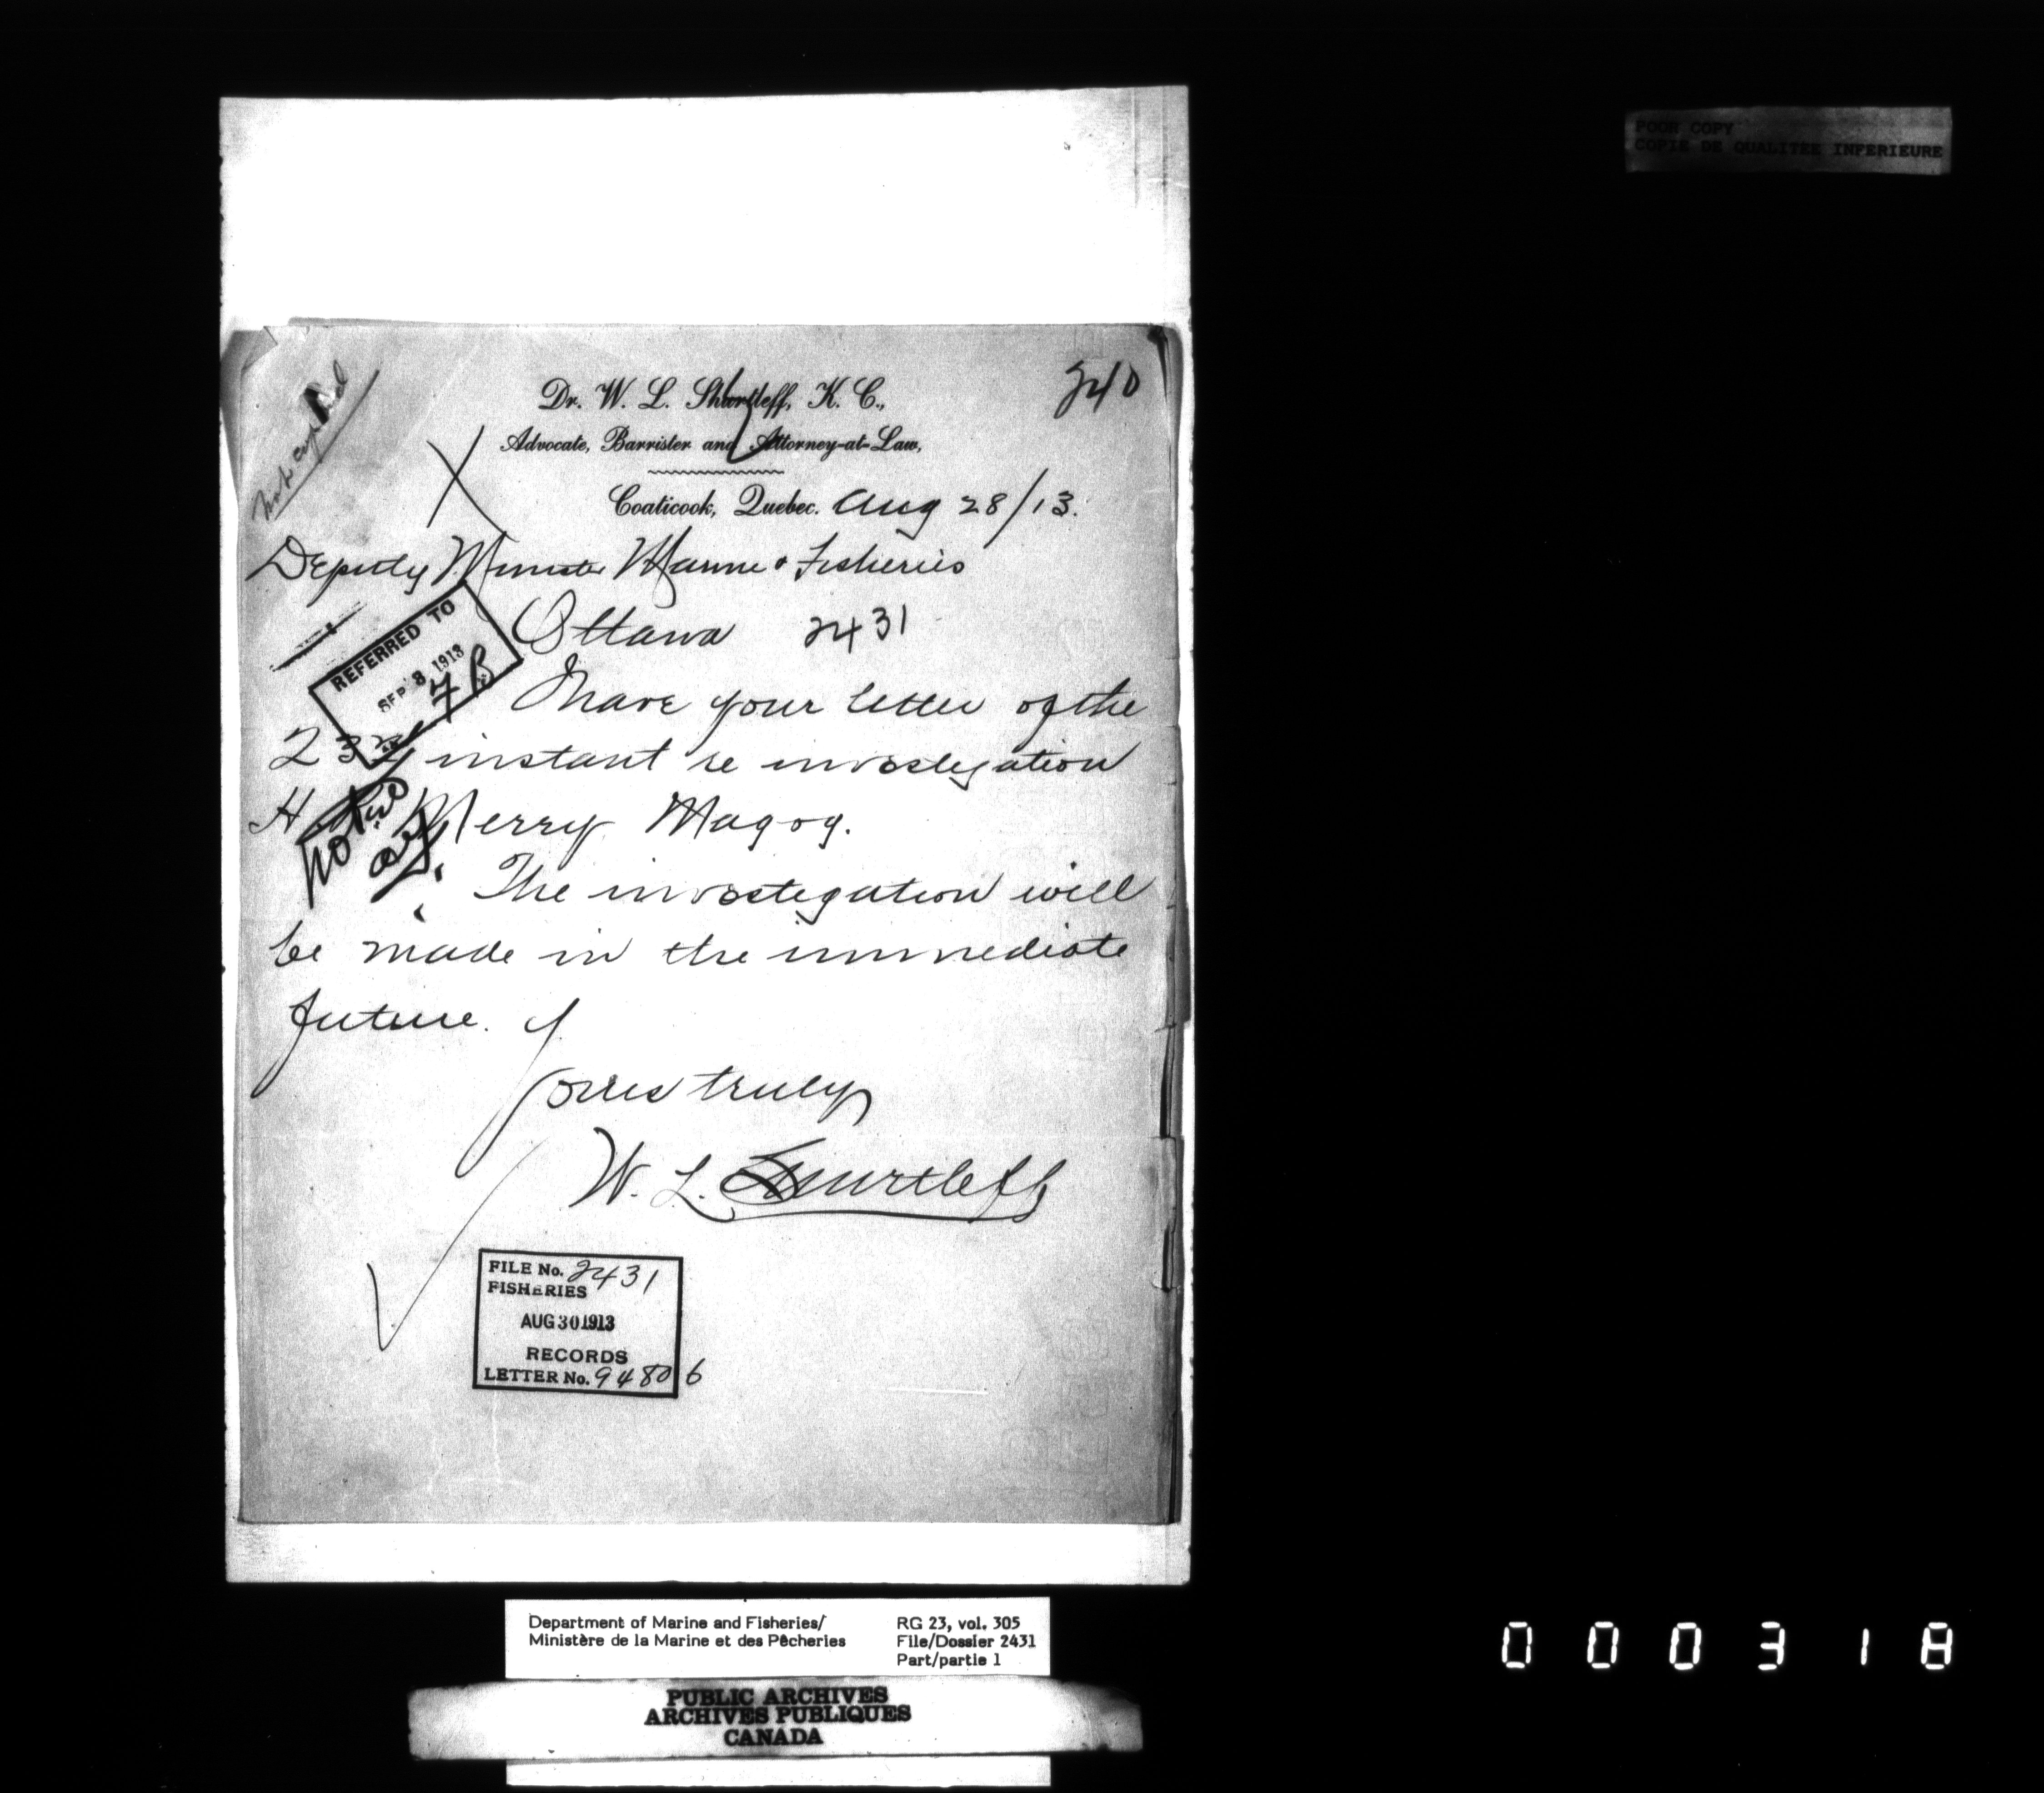 POOR COPY
COPIE DE QUALITEE INFERIEURE
240
Dr. W. L. Shurtleff, K. C.,
Advocate, Barrister and Attorney-at-Law,
Coaticook, Quebec. Aug 28/13.
Deputy Minister Marine & Fisheries
Ottawa 2431
REFERRED TO
SEP 8 1913
I have your letter of the
23rd instant re investigation
H. Merry Magog.
The investigation will
be made in the immediate
future.
Yours truly
W. L. Shurtleff
FILE No. 2431
FISHERIES
AUG 30 1913
RECORDS
LETTER No. 94806
Department of Marine and Fisheries/
Ministère de la Marine et des Pêcheries
RG 23, vol. 305
File/Dossier 2431
Part/partie 1
PUBLIC ARCHIVES
ARCHIVES PUBLIQUES
CANADA
000318